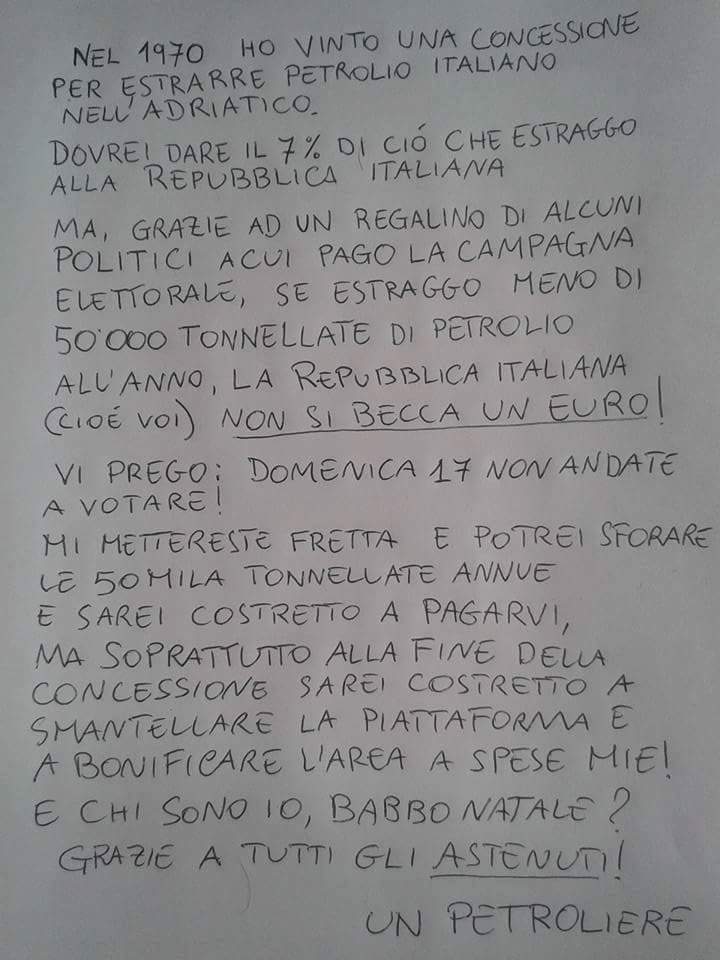 NEL 1970 HO VINTO UNA CONCESSIONE
PER ESTRARRE PETROLIO ITALIANO
NELL'ADRIATICO.
DOVREI DARE IL 7% DI CIÓ CHE ESTRAGGO
ALLA REPUBBLICA ITALIANA
MA, GRAZIE AD UN REGALINO DI ALCUNI
POLITICI A CUI PAGO LA CAMPAGNA
ELETTORALE, SE ESTRAGGO MENO DI
50'000 TONNELLATE DI PETROLIO
ALL'ANNO, LA REPUBBLICA ITALIANA
(CIOÉ VOI) NON SI BECCA UN EURO!
VI PREGO: DOMENICA 17 NON ANDATE
A VOTARE!
MI METTERESTE FRETTA E POTREI SFORARE
LE 50MILA TONNELLATE ANNUE
E SAREI COSTRETTO A PAGARVI,
MA SOPRATTUTTO ALLA FINE DELLA
CONCESSIONE SAREI COSTRETTO A
SMANTELLARE LA PIATTAFORMA E
A BONIFICARE L'AREA A SPESE MIE!
E CHI SONO IO, BABBO NATALE?
GRAZIE A TUTTI GLI ASTENUTI!
UN PETROLIERE